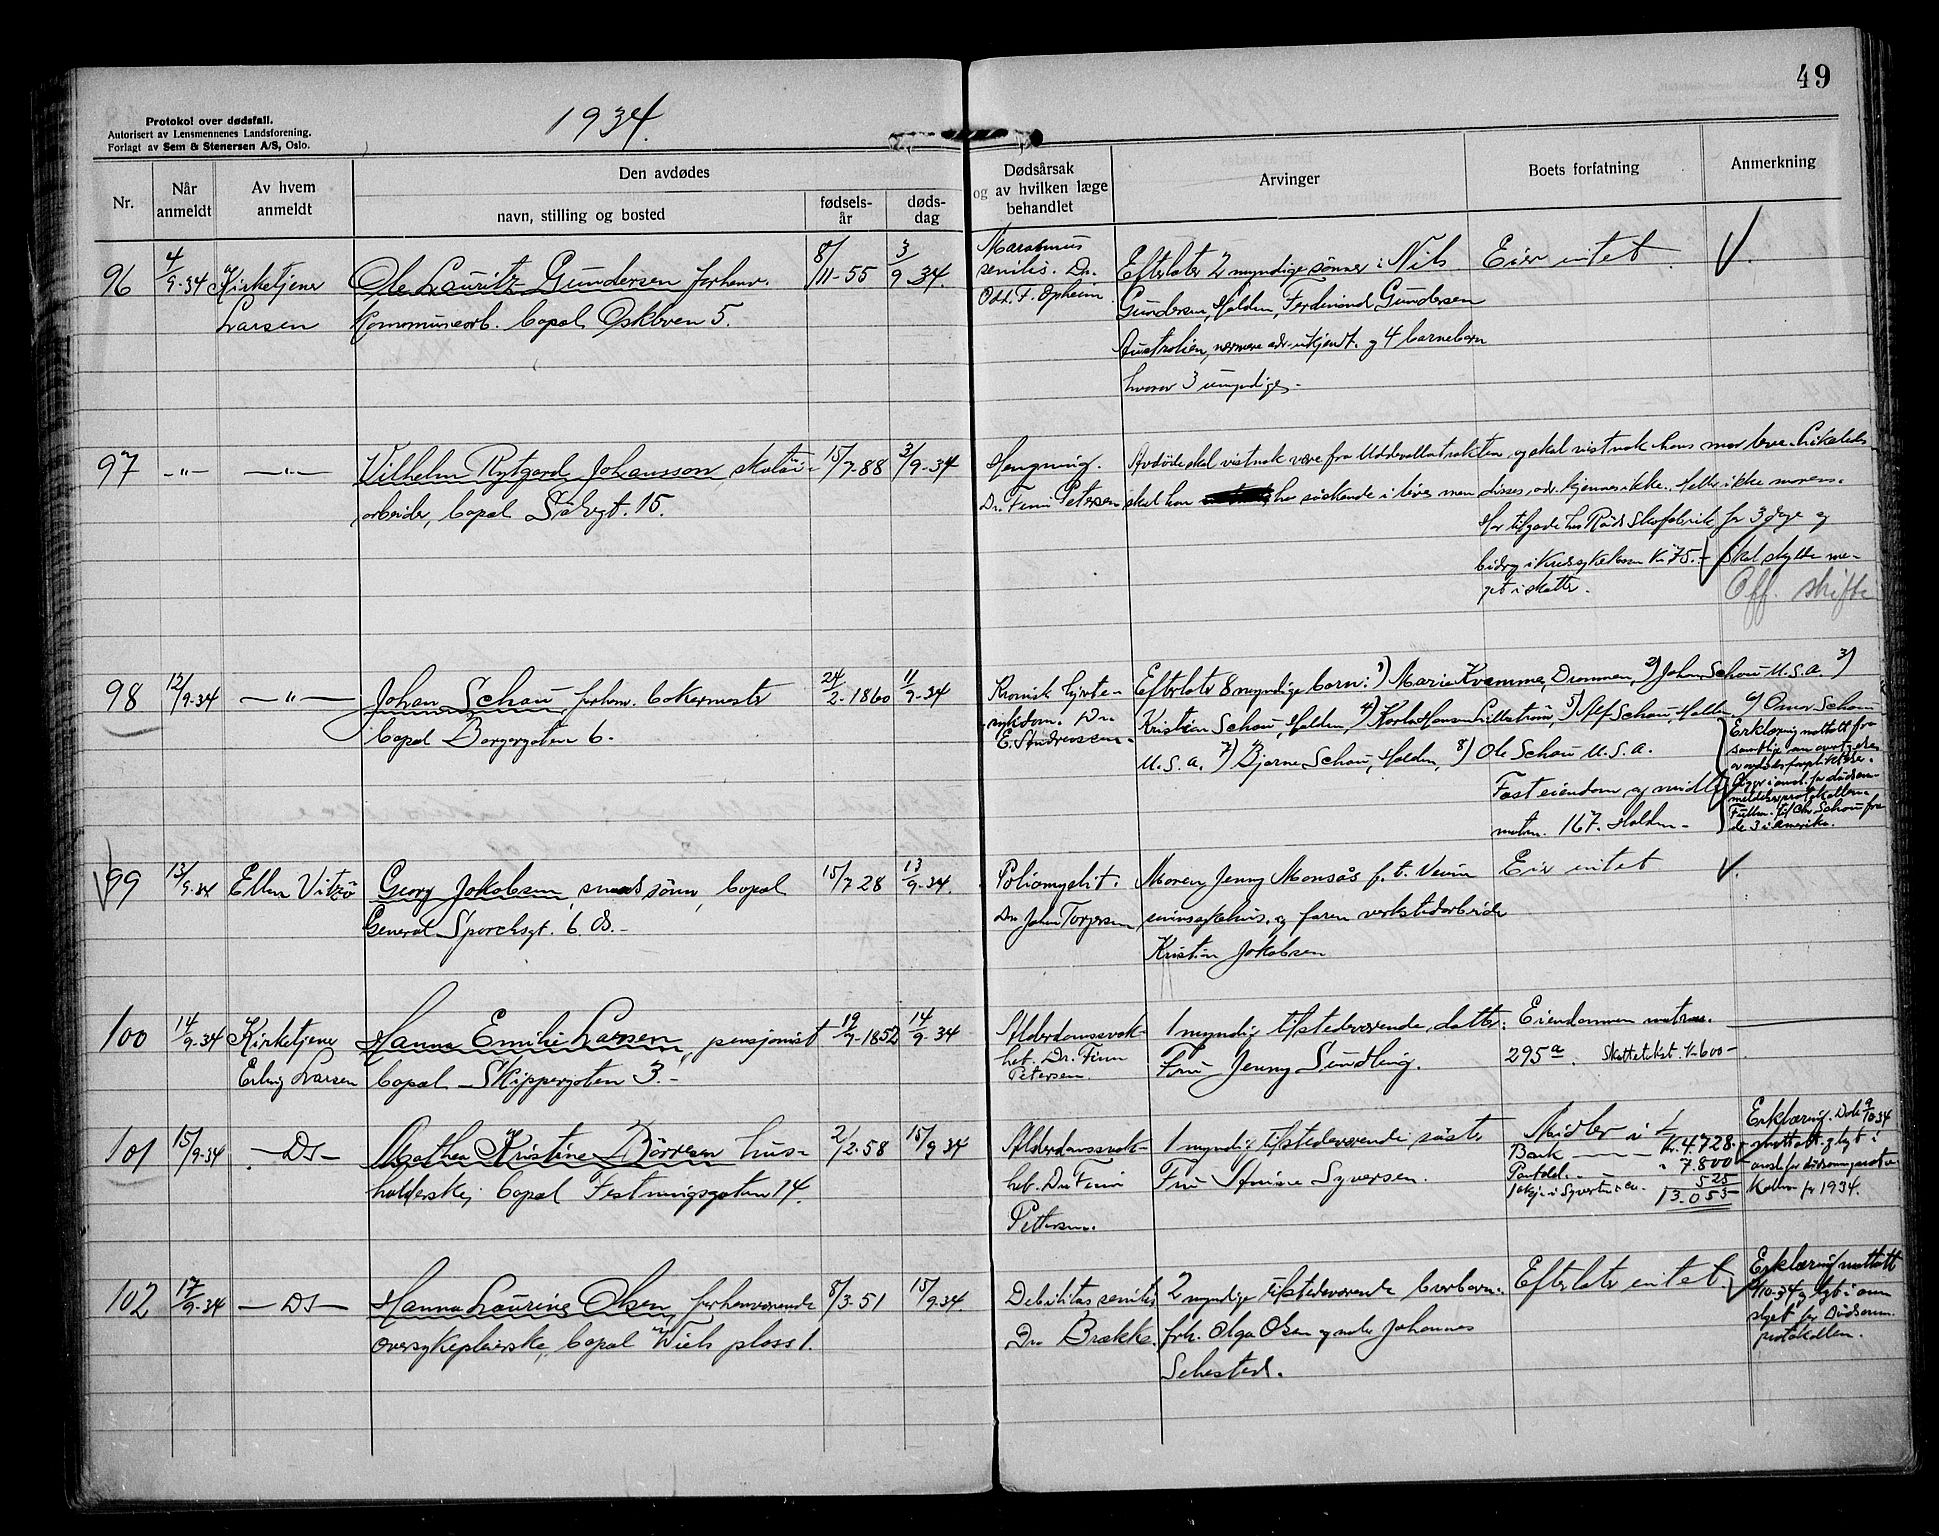 49
1934.
Protokol over dødsfall.
Autorisert av Lensmennenes Landsforening.
Forlagt av Sem & Stenersen A/S, Oslo.
Nr.
Når anmeldt
Av hvem anmeldt
Den avdødes
navn, stilling og bosted
fødsels-år
døds-dag
Dødsårsak og av hvilken læge behandlet
Arvinger
Boets forfatning
Anmerkning
96 4/9-34 Kirketjener Larsen
Ole Lauritz Gundersen forhenv.
Kommunearb. bopæl Oskleven 5.
8/11-55 3/9 34.
Marasmus
senilis. Dr.
Odd. F. Opheim.
Efterlater 2 myndige sønner: Nils
Gundersen, Halden, Ferdinand Gundersen
Australien, nærmere adr. ukjendt. og 4 barnebarn
hvorav 3 umyndige.
Eier intet.
97 -"- -"-
Vilhelm Rytgard Johansson skotøi-
arbeider, bopæl Sælvgt. 15.
15/7-88 3/9-34
Hengning.
Dr. Finn Petersen
Avdøde skal vistnok være fra Uddevallatrakten, og skal vistnok hans mor leve. Likeledes
skal han ha søskende i live, men disses adr. kjennes ikke. Heller ikke morens.
Har tilgode hos Røds Skofabrik for 3 dage og
bidrag i Kredssykekassen Kr. 75.- Skal skylde me-
get i skatter.
Off. skifte
98 12/9-34 -"-
Johan Schau, forhenv. bakermester
bopæl Borgergaten 6.
24/2-1860 11/9-34
Kronisk hjerte-
sykdom. Dr.
E. Andreassen.
Efterlater 8 myndige barn: 1) Marie Kvamme, Drammen, 2) Johan Schau U.S.A. 3)
Kristian Schau, Halden, 4) Karla Hansen Lillestrøm, 5) Alf Schau, Halden 6) Omar Schau
U.S.A. 7) Bjarne Schau, Halden, 8) Ole Schau U.S.A.
Fast eiendom og midler
matr. 167. Halden-
Erklæring mottatt fra
samtlige om overtagelse
av avdødes forpliktelser.
Ligger i omsl. for dødsan-
meldelsesprotokollen.
Fullm. til Chr. Schau fra
de 3 i Amerika.
99 13/9-34 Ellen Vitzø
Georg Jakobsen, smedsønn, bopæl
General Sporchsgt. 6 B.-
15/7 28 13/9-34.
Poliomyelit.
Dr. John Torgersen,
Moren Jenny Monsås p. t. Veum
sinnssykehus. og faren verkstedarbeider
Kristian Jakobsen
Eier intet
100 14/9-34 Kirketjener Erling Larsen
Hanna Emilie Larsen, pensjonist
bopæl. Skippergaten 3.-
19/9-1852 14/9-34
Alderdomssvak-
het. Dr. Finn
Petersen.
1 myndig tilstedeværende datter:
Fru Jenny Sundling.
Eiendommen matr.nr.
295a. Skattetakst. Kr. 600-
101 15/9-34 -Ds-
Mathea Kristine Dørresen hus-
holderske, bopæl Festningsgaten 14.
2/2-58 15/9 34
Alderdomssvak-
het. Dr. Finn
Pettersen.
1 myndig tilstedeværende søster
Fru Amine Syversen.
Midler i
Bank - - - Kr. 4.728.-
Pantobl. - - - " 7.800-
1 aksje i Syvertsen & Co. - 525
13.053-
Erklæring. Dat. 9/10-34
mottatt. og lagt i
omsl. for dødsanm.proto-
kollen for 1934.
102 17/9-34 -Ds-
Hanna Laurine Olsen, forhenværende
oversykepleierske, bopæl Wiels plass 1.
8/3-51 15/9 34
Debilitas senilis
Dr. Brække.
2 myndige tilstedeværende brorbarn:
frk. Olga Olsen og maler Johannes
Sehested.
Efterlater intet
Erklæring mottatt
4/10-34 og lagt i om-
slaget for Dødsanm.
protokollen.